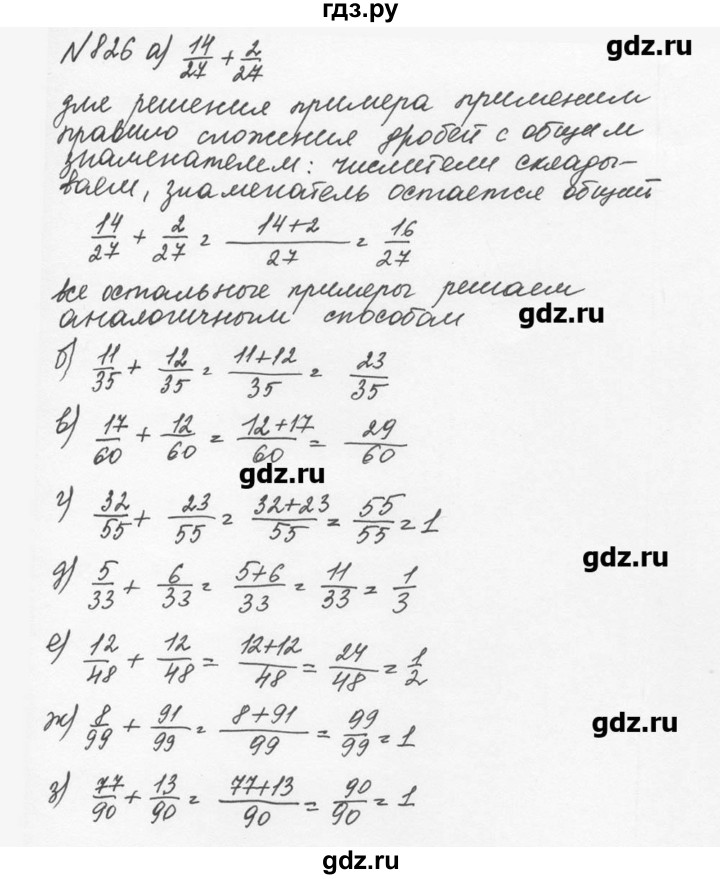 гдз.ру
gdz.ru
№826 а) 14/27 + 2/27
для решения примера применим
правило сложения дробей с общим
знаменателем: числители склады-
ваем, знаменатель остается общий
14/27 + 2/27 = 14+2/27 = 16/27
все остальные примеры решаем
аналогичным способом
gdz.ru
б) 11/35 + 12/35 = 11+12/35 = 23/35
в) 17/60 + 12/60 = 12+17/60 = 29/60
gdz.ru
г) 32/55 + 23/55 = 32+23/55 = 55/55 = 1
gdz.ru
д) 5/33 + 6/33 = 5+6/33 = 11/33 = 1/3
е) 12/48 + 12/48 = 12+12/48 = 24/48 = 1/2
gdz.ru
ж) 8/99 + 91/99 = 8+91/99 = 99/99 = 1
з) 77/90 + 13/90 = 77+13/90 = 90/90 = 1
gdz.ru